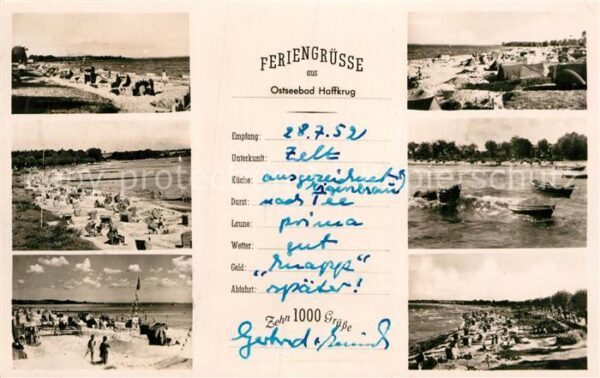 FERIENGRÜSSE
aus
Ostseebad Haffkrug
Empfang: 28.7.52
Unterkunft: Zelt
Küche: ausgezeichnet
Eigenbräu
Durst: nach Tee
Laune: prima
Wetter: gut
Geld: „knapp“
Abfahrt: später!
Zehn 1000 Grüße
Gerhard